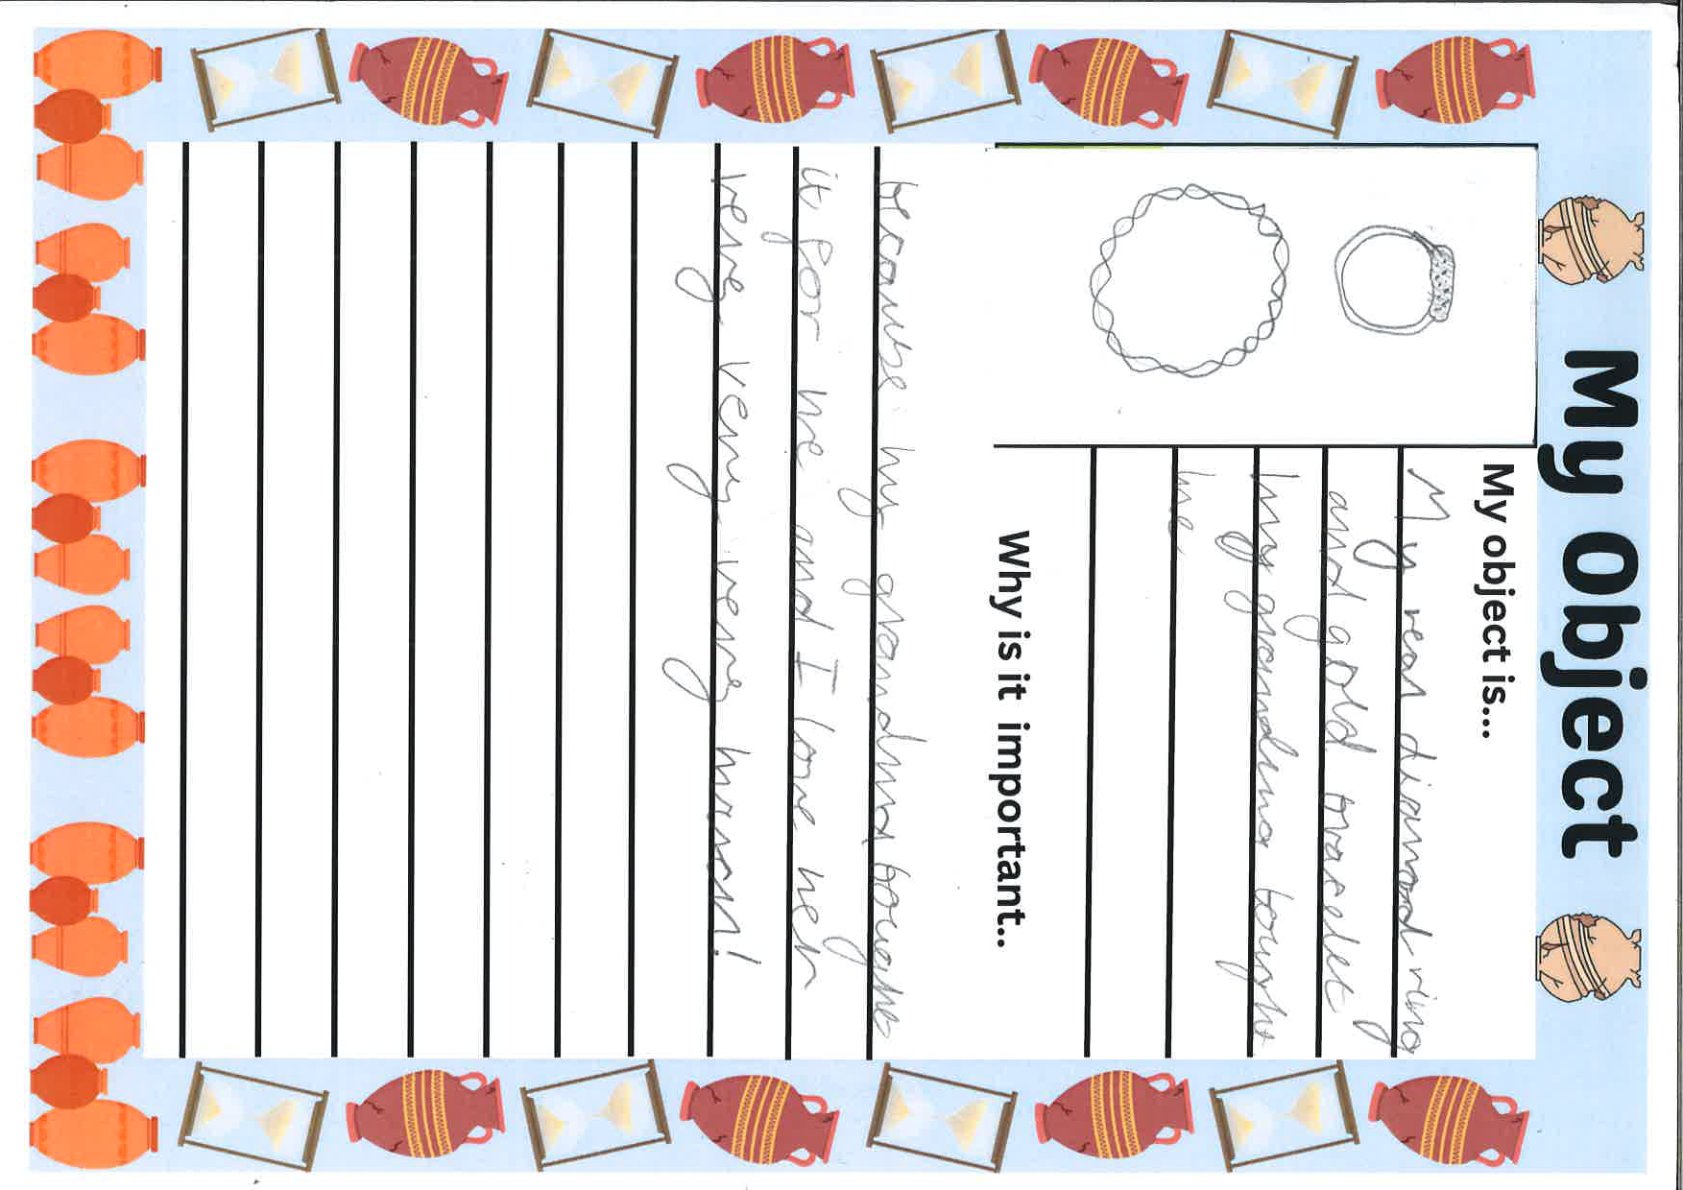 My Object
My object is...
My real diamond ring
and gold bracelet
my grandma bought
me
Why is it important..
because my grandma bought
it for me and I love her
very very very much!